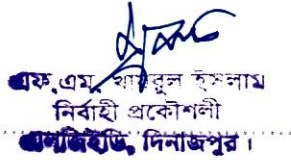 এফ,এম, খায়রুল ইসলাম
নির্বাহী প্রকৌশলী
এলজিইডি, দিনাজপুর।